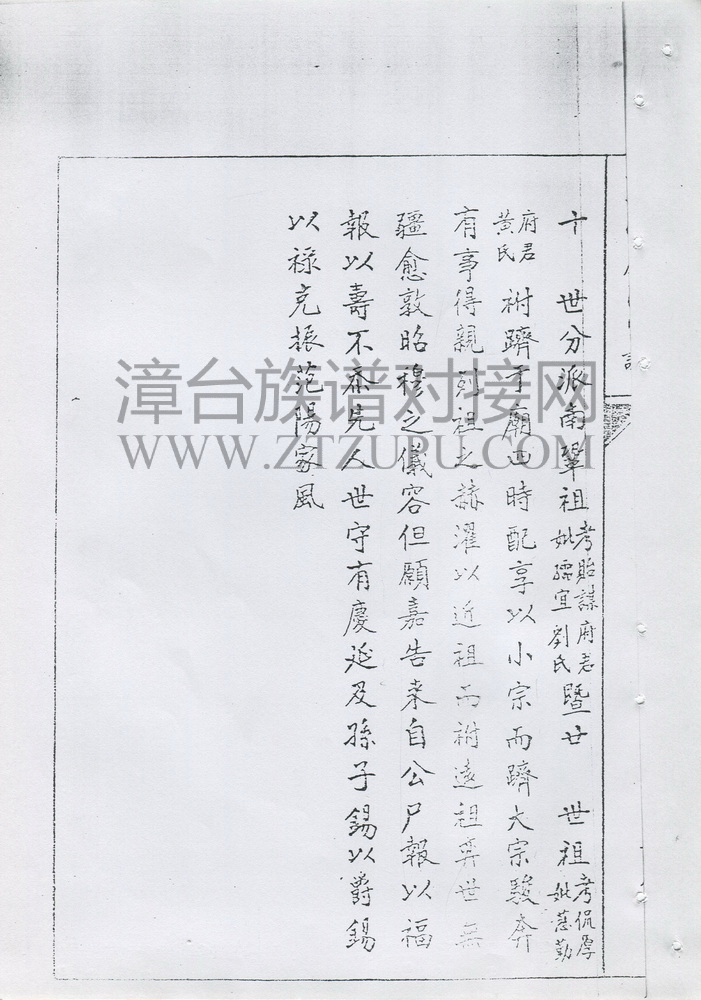 十 世分派南鞏祖考貽謀府君妣孺宜劉氏暨廿 世祖考侃厚妣慈勤
府君黃氏祔躋于廟四時配享以小宗而躋大宗駿奔
有事得親列祖之赫濯以近祖而祔遠祖奕世無
疆愈敦昭穆之儀容但願嘉告來自公尸報以福
報以壽不忝先人世守有慶延及孫子錫以爵錫
以祿克振范陽家風
漳台族谱对接网
WWW.ZTZUPU.COM